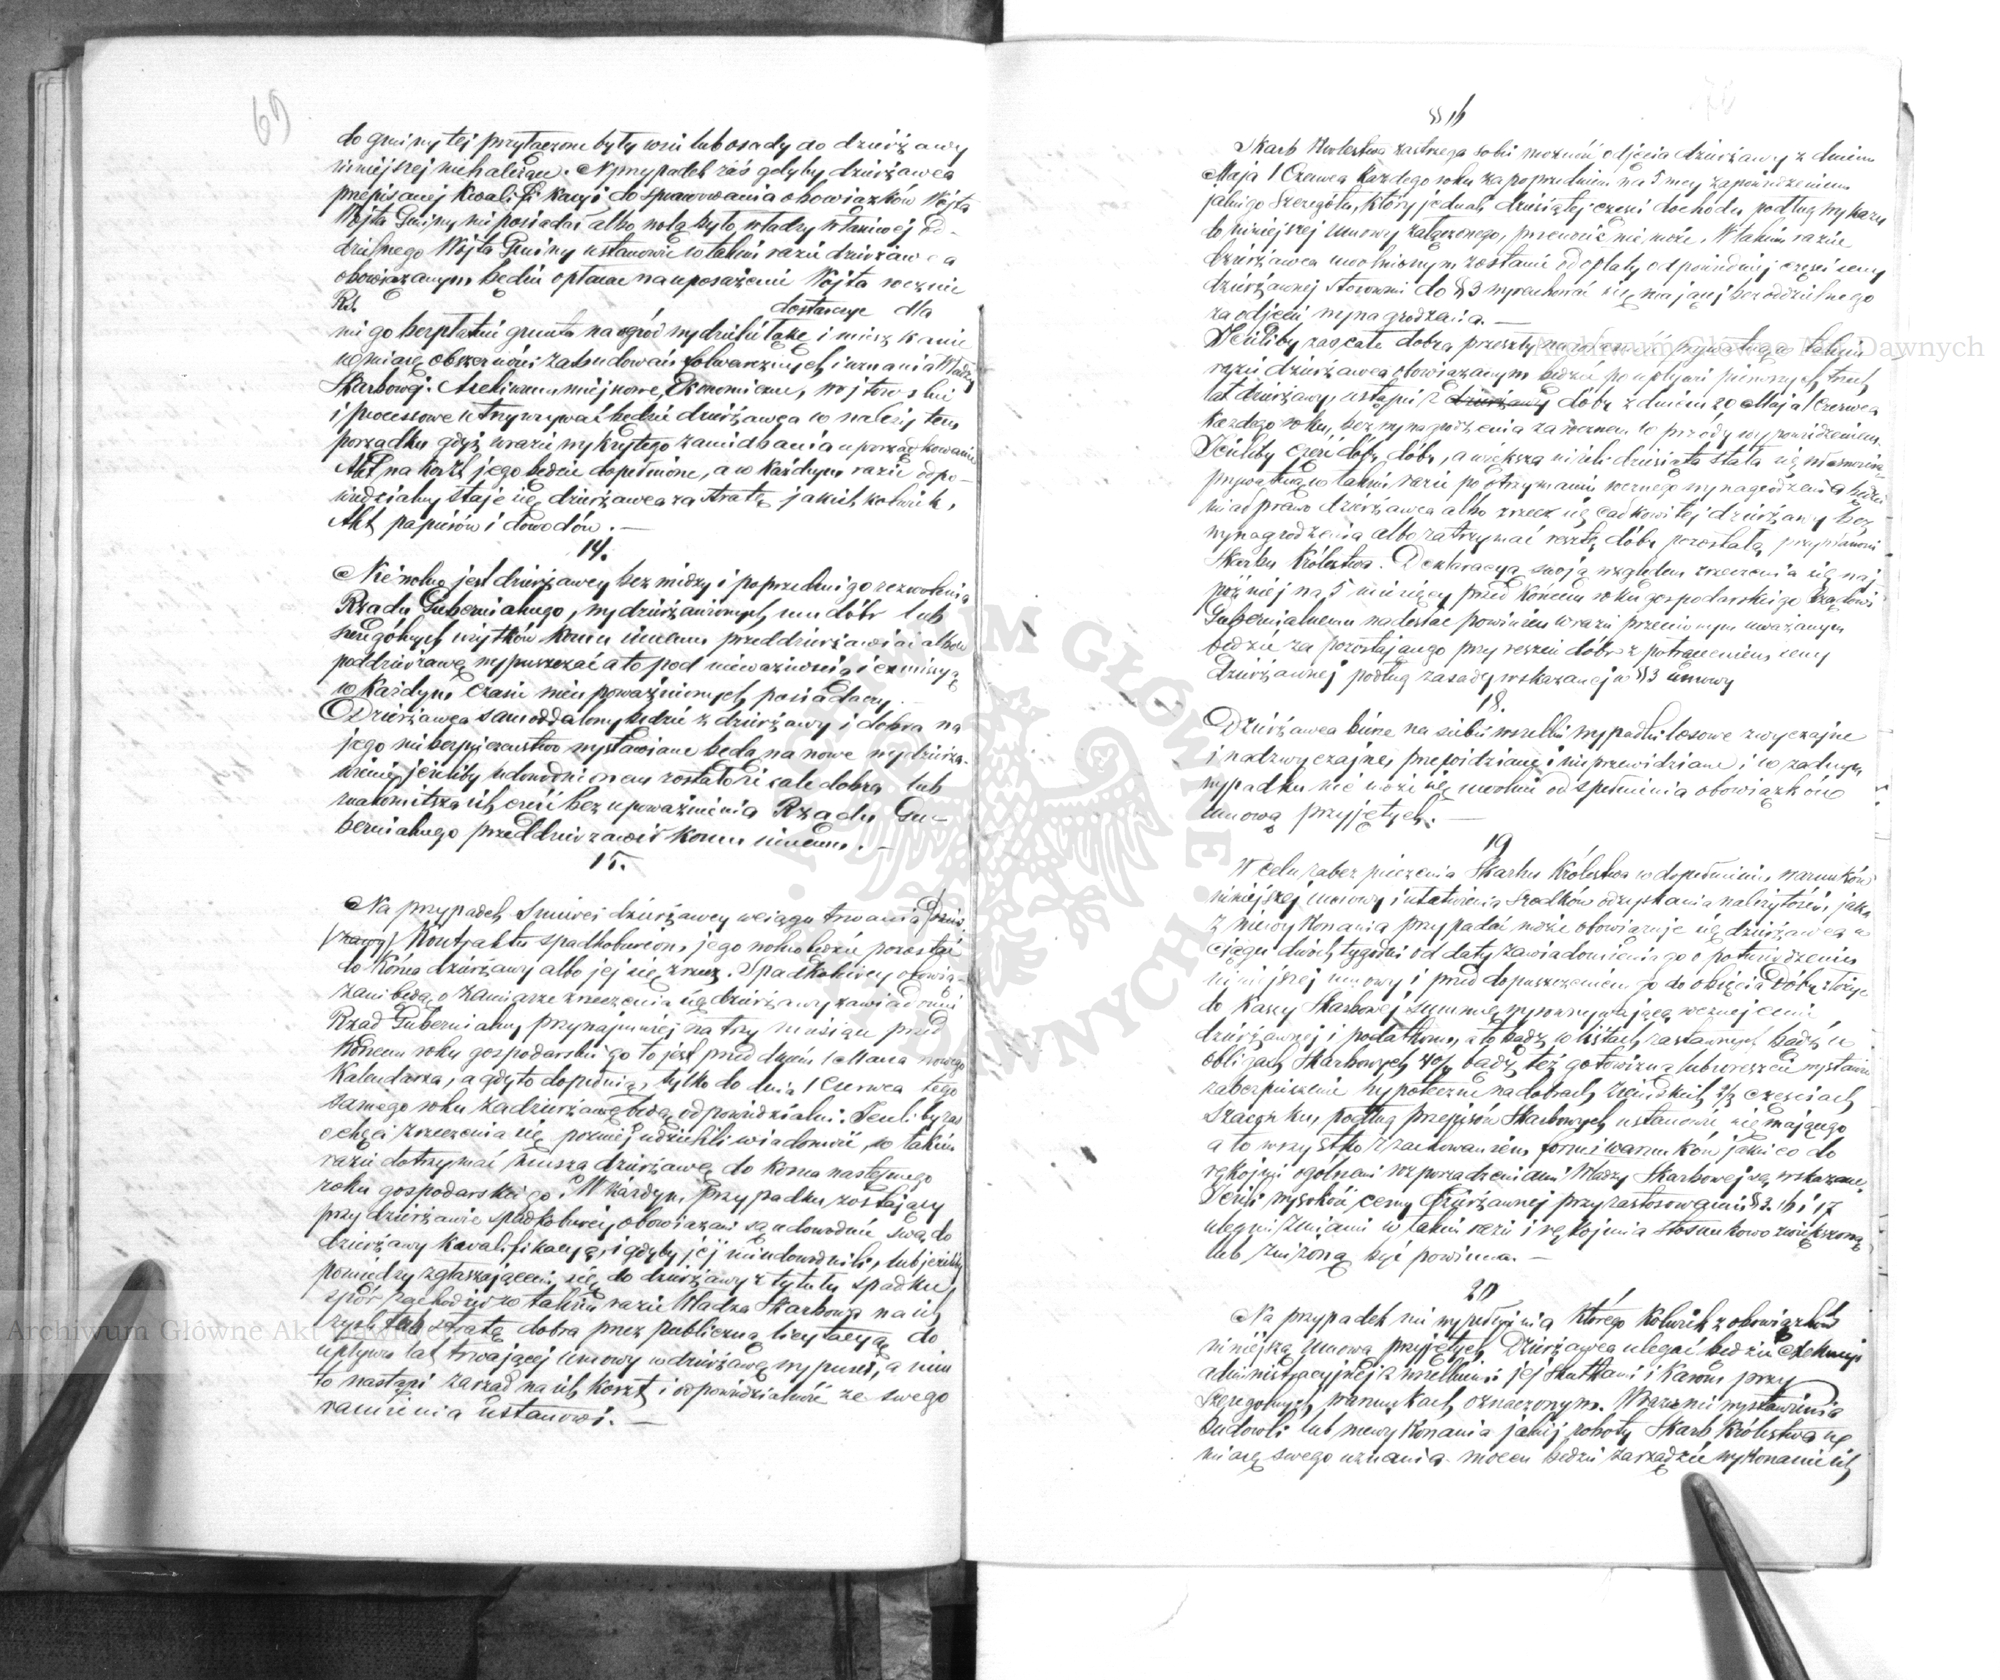 69
do gminy tej przyłączone były wsie lub osady do dzierżawy
niniejszej nienależące. Na przypadek zaś gdyby dzierżawca
przepisanej kwalifikacyi do sprawowania obowiązków Wójta
Wójta Gminy nie posiadał albo wolą było władzy właściwej od-
dzielnego Wójta Gminy ustanowić w takim razie dzierżawca
obowiązanym będzie opłacać na uposażenie Wójta rocznie
Rs. dostarczyć dla
niego bezpłatnie gruntu na ogród wydzielić także i mieszkanie
w miarę obszerności zabudowań folwarcznych i uznania Władzy
Skarbowej. Archiwum miejscowe, Ekonomiczne, wójtowskie
i processowe utrzymywać będzie dzierżawca w należytem
porządku gdyż w razie wykrytego zaniedbania uporządkowanie
Akt na koszt jego będzie dopełnione, a w każdym razie odpo-
wiedzialny staje się dzierżawca za stratę jakichkolwiek,
Akt papierów i dowodów. —
14.
Niewolno jest dzierżawcy bez wiedzy i poprzedniego zezwolenia
Rządu Gubernialnego, wydzierżawionych mu dóbr lub
szczególnych użytków komu innemu przeddzierżawiać albo w
poddzierżawę wypuszczać a to pod nieważnością i exmissyą
w każdym czasie nieupoważnionych posiadaczy.
Dzierżawca sam oddalony będzie z dzierżawy i dobra na
jego niebezpieczeństwo wystawione będą na nowe wydzierża-
wienie, jeżeliby udowodnionem zostało że całe dobra lub
znakomitszą ich cześć bez upoważnienia Rządu Gu-
bernialnego przeddzierżawił komu innemu. —
15.
Na przypadek śmierci dzierżawcy w ciągu trwania Dzier
(żawy) Kontraktu spadkobiercom jego wolno będzie pozostać
do końca dzierżawy albo jej się zrzec. Spadkobiercy obowią-
zani będą o zamiarze zrzeczenia się dzierżawy zawiadomić
Rząd Gubernialny przynajmniej na trzy miesiące przed
końcem roku gospodarskiego to jest przed dniem 1 Marca nowego
Kalendarza, a gdy to dopełnią, tylko do dnia 1 Czerwca tego
samego roku za dzierżawę będą odpowiedzialni. Jeżeliby zaś
o chęci zrzeczenia się później udzielili wiadomość, w takim
razie dotrzymać muszą dzierżawę do końca następnego
roku gospodarskiego. W każdym przypadku zostający
przy dzierżawie spadkobiercy obowiązani są udowodnić swą do
dzierżawy kwalifikacyą, i gdyby jej nieudowodnili, lub jeżeliby
pomiędzy zgłaszającemi się do dzierżawy z tytułu spadku
spór zachodził w takim razie Władza Skarbowa na ich
zysk lub stratę dobra przez publiczną licytacyą do
upływu lat trwającej umowy w dzierżawę wypuści, a nim
to nastąpi zarząd na ich koszt i odpowiedzialność ze swego
ramienia ustanowi. —
§§ 16
Skarb Królestwa zastrzega sobie możność odjęcia dzierżawy z dniem
Maja / Czerwca każdego roku za poprzedniem na 5 mcy zapowiedzeniem
jakiego szczegółu, który jednak dziesiątej części dochodu podług wykazu
do niniejszej umowy załączonego, przenosić nie może. W takim razie
Dzierżawca uwolnionym zostanie od opłaty odpowiedniej części ceny
dzierżawnej stosownie do § 3 wyrachować się mającej bez oddzielnego
za odjęcie wynagrodzenia. —
Jeżeliby zaś całe dobra przeszły na własność prywatną w takim
razie dzierżawca obowiązanym będzie po upływie pierwszych trzech
lat dzierżawy, ustąpić z dzierżawy dóbr z dniem 20 Maja / 1 Czerwca
każdego roku, bez wynagrodzenia za rocznem w przódy wypowiedzeniem.
Jeżeliby cześć dóbr dóbr, a większa niżeli dziesiąta stała się własnością
prywatną w takim razie po otrzymaniu rocznego wynagrodzenia będzie
miał prawo dzierżawca albo zrzec się całkowitej dzierżawy bez
wynagrodzenia albo zatrzymać resztę dóbr pozostałą przy
Skarbu Królestwa. Deklaracyą swoją względem zrzeczenia się naj
później na 5 miesięcy przed końcem roku gospodarskiego Rządowi
Gubernialnemu nadesłać powinien w razie przeciwnym uważanym
będzie za pozostającego przy reszcie dóbr z potrąceniem ceny
dzierżawnej podług zasady wskazanej w § 3 umowy
18.
Dzierżawca bierze na siebie wszelkie wypadki losowe zwyczajne
i nadzwyczajne, przewidziane i nieprzewidziane i w żadnym
wypadku nie może się uwolnić od spełnienia obowiązków
umową przyjętych. —
19
W celu zabezpieczenia Skarbu Królestwa w dopełnieniu warunków
niniejszej umowy i ułatwienia środków odzyskania należytości, jaka
z niewykonania przypadać może obowiązuje się dzierżawca w
ciągu dwóch tygodni od daty zawiadomienia go o potwierdzeniu
niniejszej umowy i przed dopuszczeniem go do objęcia Dóbr złożyć
do Kassy Skarbowej summę wyrównywającą rocznej cenie
dzierżawnej i podatkom, a to bądź w listach zastawnych bądź w
obligach Skarbowych 4% bądź też gotowizną lub wreszcie wystawić
zabezpieczenie hypoteczne na dobrach ziemskich w 2/3 częściach
szacunku, podług przepisów Skarbowych ustanowić się mającego
a to wszystko z zachowaniem form i warunków jakie co do
rękojmi ogólnemi rozporządzeniami Władzy Skarbowej są wskazane.
Jeżeli wysokość ceny Dzierżawnej przy zastosowaniu § 3. 16 i 17
ulegnie zmianie w takim razie i rękojmia stosunkowo zwiększoną
lub zniżoną być powinna. —
20
Na przypadek nie wypełnienia któregokolwiek z obowiązków
niniejszą umową przyjętych Dzierżawca ulegać będzie exekucyi
administracyjnej z wszelkiemi jej skutkami i karom przy
szczególnych warunkach oznaczonym. W razie nie wystawienia
budowli lub niewykonania jakiej roboty Skarb Królestwa w
miarę swego uznania mocen będzie zarządzić wykonanie ich